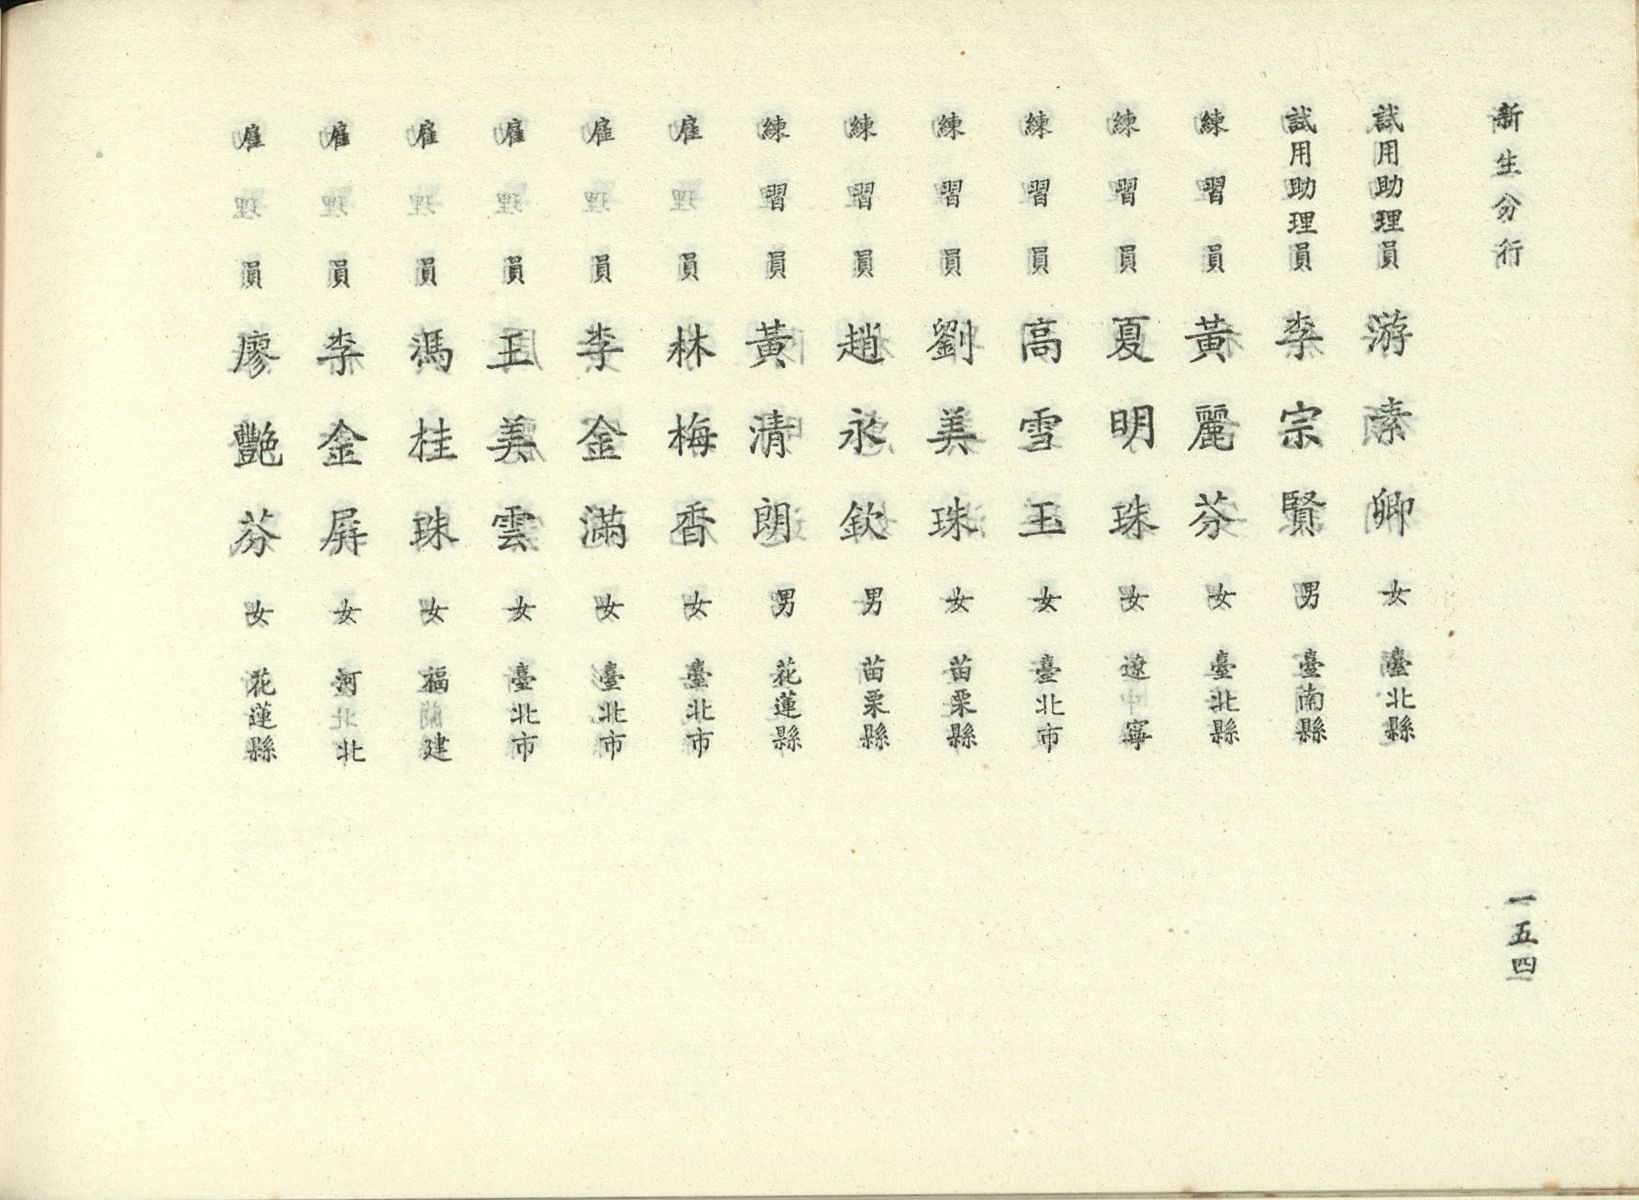 新生分行
試用助理員 游素卿 女 臺北縣
試用助理員 李宗賢 男 臺南縣
練習員 黃麗芬 女 臺北縣
練習員 夏明珠 女 遼寧
練習員 高雪玉 女 臺北市
練習員 劉美珠 女 苗栗縣
練習員 趙永欽 男 苗栗縣
練習員 黃清朗 男 花蓮縣
雇員 林梅香 女 臺北市
雇員 李金滿 女 臺北市
雇員 王美雲 女 臺北市
雇員 馮桂珠 女 福建
雇員 李金屏 女 河北
雇員 廖艷芬 女 花蓮縣
一五四